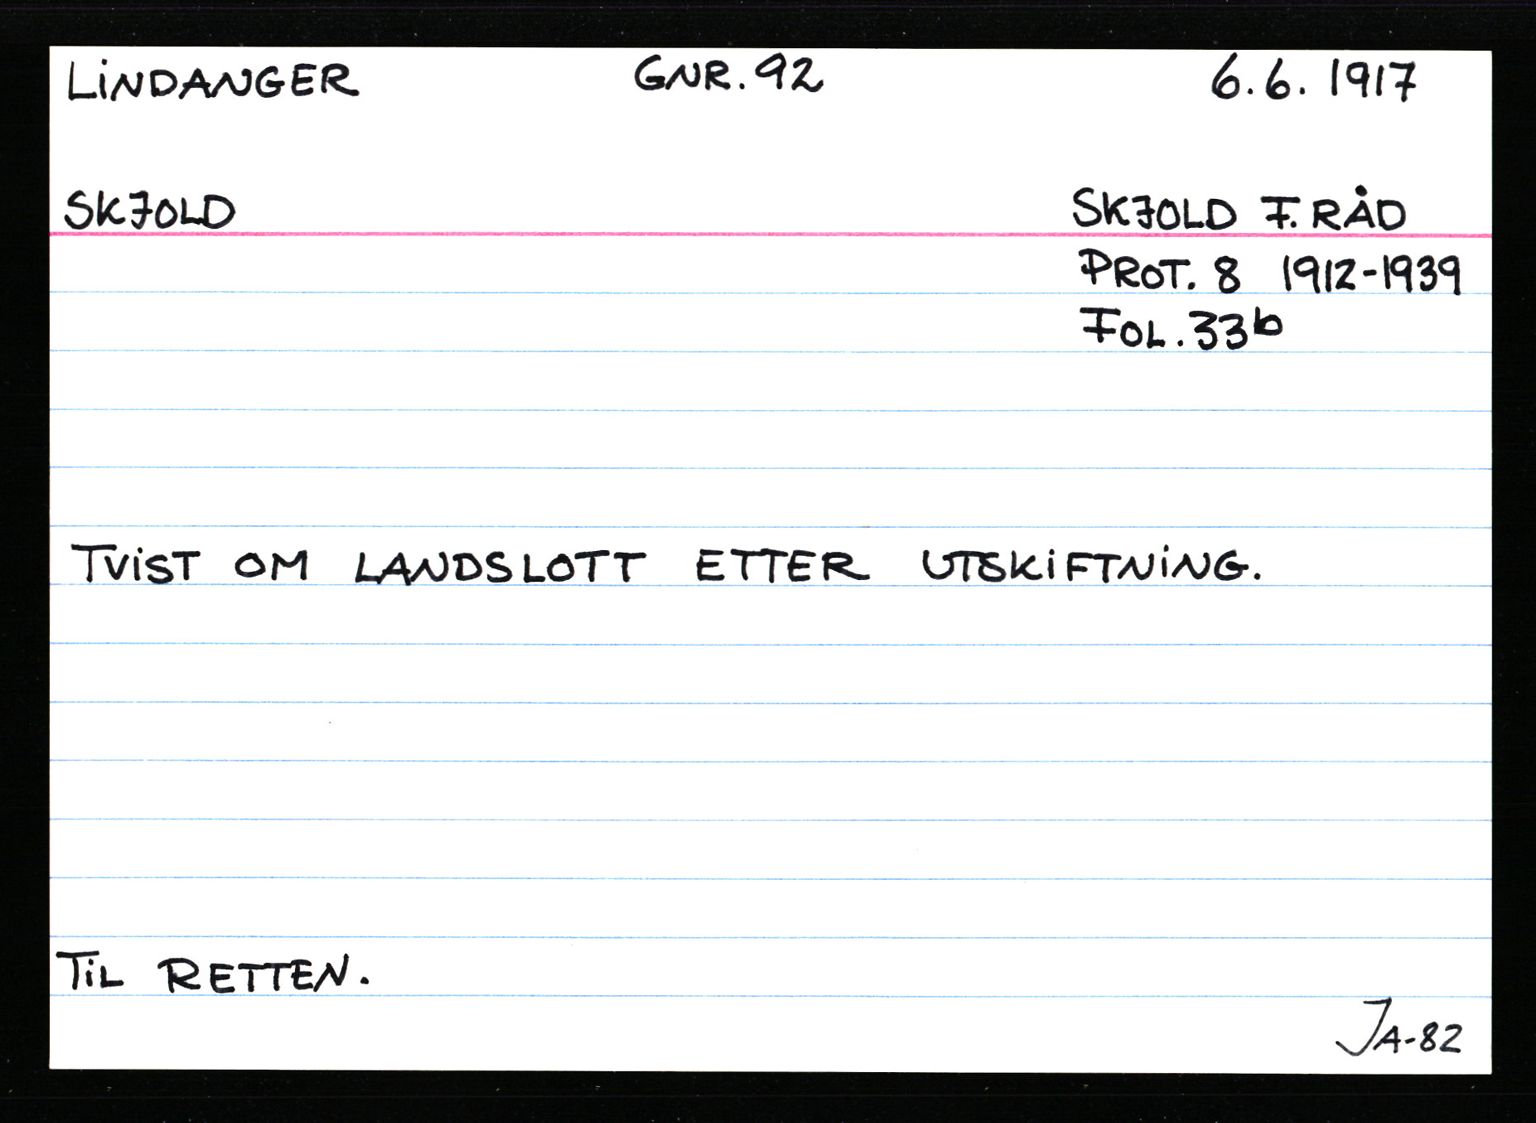 LINDANGER GNR. 92 6.6. 1917
SKJOLD SKJOLD F. RÅD
PROT. 8 1912-1939
FOL. 33b
TVIST OM LANDSLOTT ETTER UTSKIFTNING.
TIL RETTEN.
JA-82